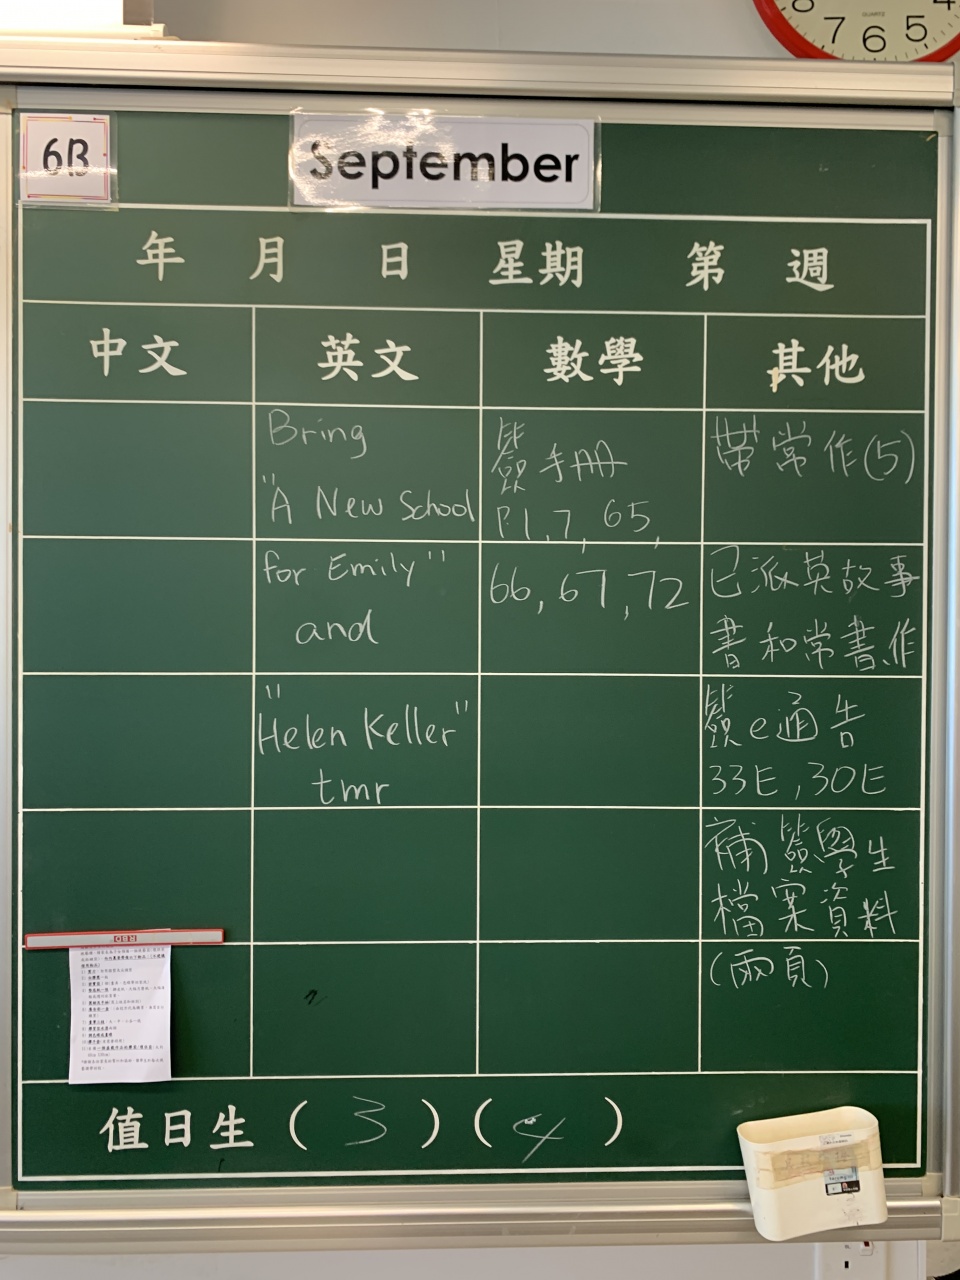 7 6 5
QUARTZ
6B
September
年 月 日 星期 第 週
中文 英文 數學 其他
Bring
"A New School
for Emily"
and
"Helen Keller"
tmr
簽手冊
P.1,7, 65,
66, 67, 72
帶常作(5)
已派英故事
書和常書,作
簽e通告
33E, 30E
補簽學生
檔案資料
(兩頁)
值日生 ( 3 ) ( 4 )